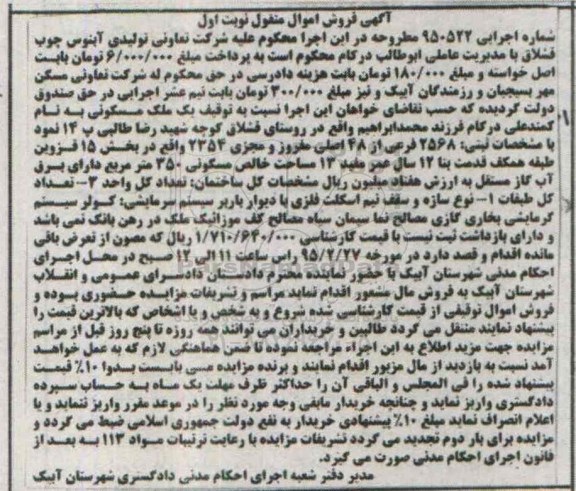 آگهی فروش اموال منقول نوبت اول
شماره اجرایی ۹۵۰۵۲۲ مطروحه در این اجرا محکوم علیه شرکت تعاونی تولیدی آبنوس چوب
قشلاق با مدیریت عاملی ابوطالب درکام محکوم است به پرداخت مبلغ ۶/۰۰۰/۰۰۰ تومان بابت
اصل خواسته و مبلغ ۱۸۰/۰۰۰ تومان بابت هزینه دادرسی در حق محکوم له شرکت تعاونی مسکن
مهر بسیجیان و رزمندگان آبیک و نیز مبلغ ۳۰۰/۰۰۰ تومان بابت نیم عشر اجرایی در حق صندوق
دولت گردیده که حسب تقاضای خواهان این اجرا نسبت به توقیف یک ملک مسکونی به نام
کمندعلی درکام فرزند محمدابراهیم واقع در روستای قشلاق کوچه شهید رضا طالبی پ ۱۴ نمود
با مشخصات ثبتی: ۲۵۶۸ فرعی از ۴۸ اصلی مفروز و مجزی ۲۳۵۴ واقع در بخش ۱۵ قزوین
طبقه همکف قدمت بنا ۱۲ سال عمر مفید ۱۳ مساحت خالص مسکونی ۳۵۰ متر مربع دارای برق
آب گاز مستقل به ارزش هفتاد میلیون ریال مشخصات کل ساختمان: تعداد کل واحد ۳- تعداد
کل طبقات ۱- نوع سازه و سقف نیم اسکلت فلزی با دیوار باربر سیستم سرمایشی: کولر سیستم
گرمایشی بخاری گازی مصالح نما سیمان سیاه مصالح کف موزائیک ملک در رهن بانک نمی باشد
و دارای بازداشت ثبت نیست با قیمت کارشناسی ۱/۷۱۰/۶۴۰/۰۰۰ ریال که مصون از تعرض باقی
مانده اقدام و قصد دارد در مورخه ۹۵/۲/۲۷ راس ساعت ۱۱ الی ۱۲ صبح در محل اجرای
احکام مدنی شهرستان آبیک با حضور نماینده محترم دادستان دادسرای عمومی و انقلاب
شهرستان آبیک به فروش مال مشعور اقدام نماید مراسم و تشریفات مزایده حضوری بوده و
فروش اموال توقیفی از قیمت کارشناسی شده شروع و به شخص و یا اشخاص که بالاترین قیمت را
پیشنهاد نمایند منتقل می گردد طالبین و خریداران می توانند همه روزه تا پنج روز قبل از مراسم
مزایده جهت مزید اطلاع به این اجراء مراجعه نموده تا ضمن هماهنگی لازم که به عمل خواهد
آمد نسبت به بازدید از مال مزبور اقدام نمایند و برنده مزایده می بایست بدوا ۱۰٪ قیمت
پیشنهاد شده را فی المجلس و الباقی آن را حداکثر ظرف مهلت یک ماه به حساب سپرده
دادگستری واریز نماید و چنانچه خریدار مابقی وجه مورد نظر را در موعد مقرر واریز ننماید و یا
اعلام انصراف نماید مبلغ ۱۰٪ پیشنهادی خریدار به نفع دولت جمهوری اسلامی ضبط می گردد و
مزایده برای بار دوم تجدید می گردد تشریفات مزایده با رعایت ترتیبات مواد ۱۱۳ به بعد از
قانون اجرای احکام مدنی صورت می گیرد.
مدیر دفتر شعبه اجرای احکام مدنی دادگستری شهرستان آبیک